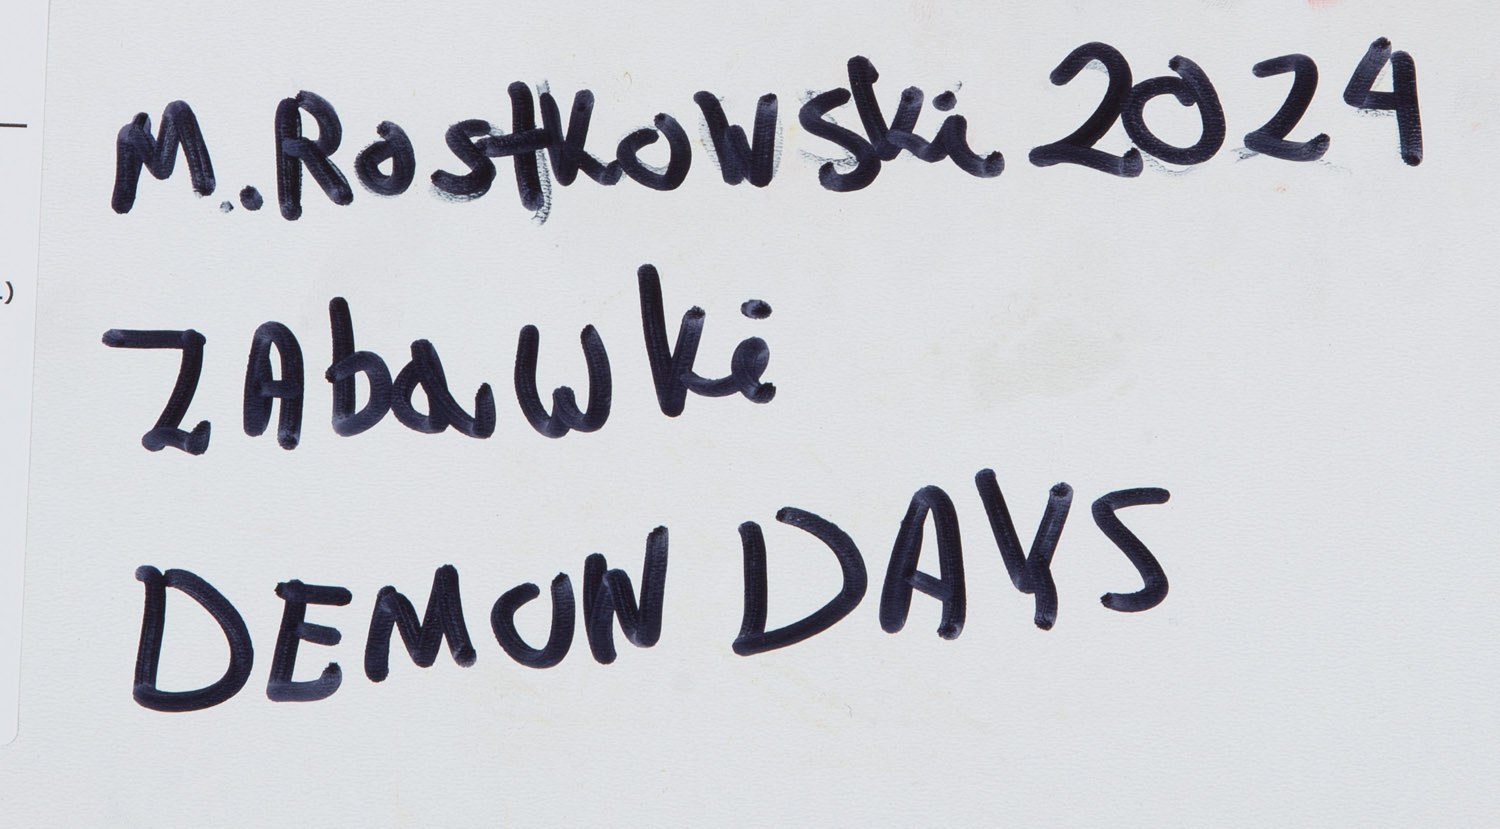 M. Rostkowski 2024
ZAbawki
DEMON DAYS
.)